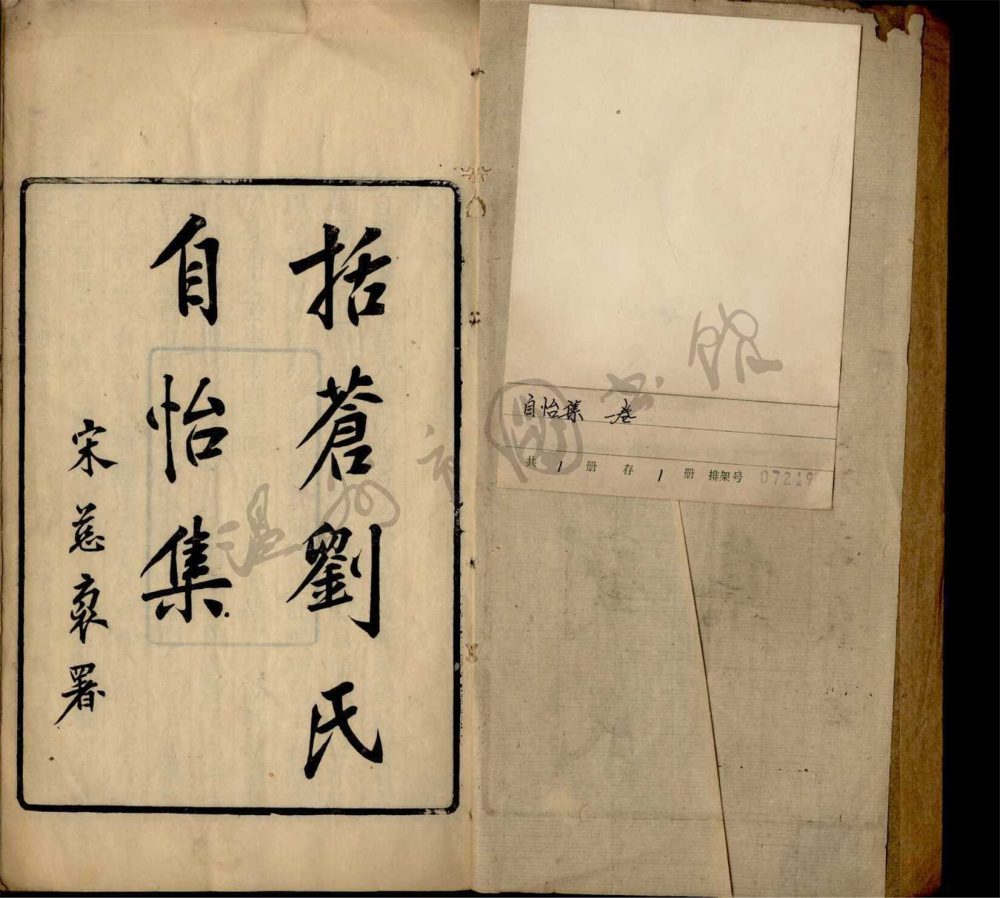 括蒼劉氏
自怡集
宋慈裒署
自怡集 一卷
共 1 册 存 1 册 排架号 07219
温州市圖书館